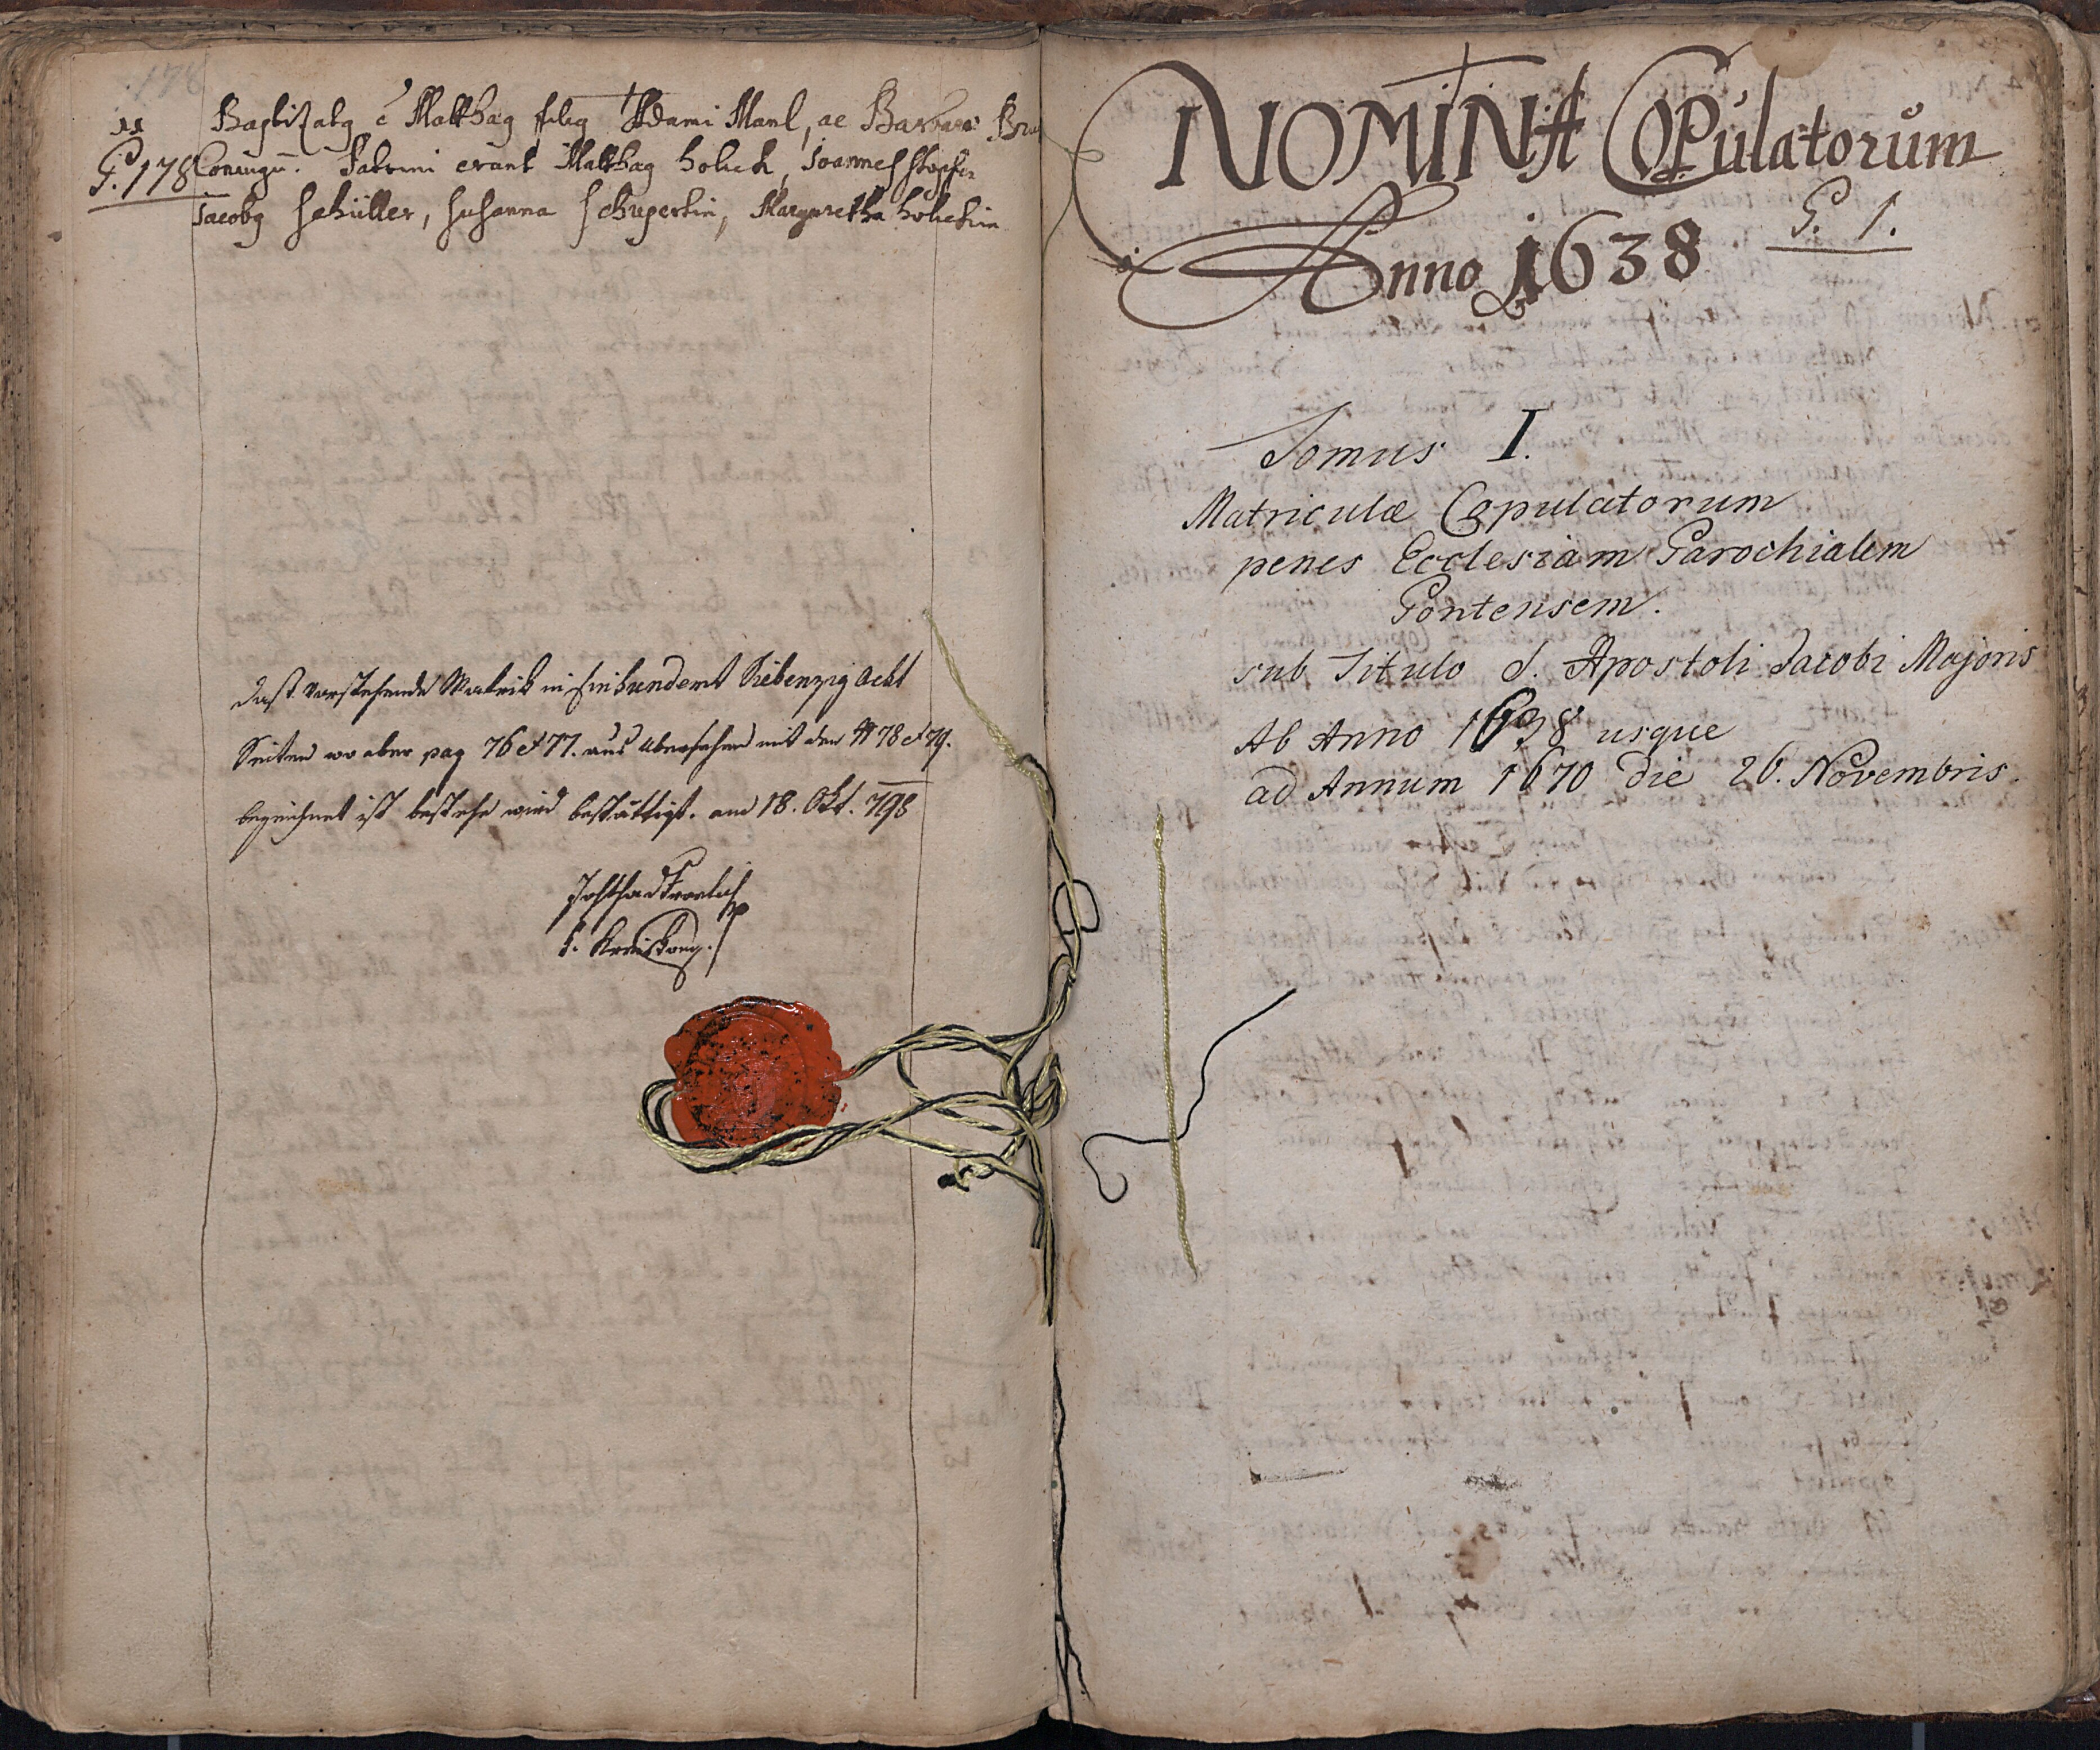 178
11 Baptizatg è Matthæg filig Adami Manl, ac Barbara
P. 178 Coniugū. Patrini erant Matthæg Holick, Joannes Stopfer
Jacobg Schüller, Susanna Schupertin, Margaretha Holickin
Daß vorstehende Matrik in Einhundert Siebenzig Acht
Seiten wo aber pag 76 et 77. aus Übersehen mit den 78 et 79.
bezeichnet ist bestehe wird bestättigt. am 18. Okt. 798
k.
NOMINA COPulatorum
P. 1.
Anno 1638
Tomus I.
Matriculæ Copulatorum
penes Ecclesiam Parochialem
Pontensem.
sub Titulo S. Apostoli Jacobi Majoris
Ab Anno 1638 usque
ad Annum 1670 die 26. Novembris.